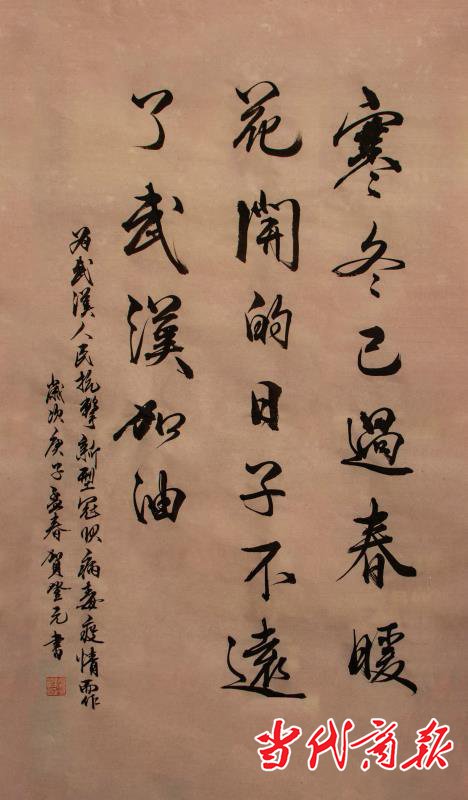 寒冬已過春暖
花開的日子不遠
了武漢加油
為武漢人民抗擊新型冠狀病毒疫情而作
歲次庚子孟春賀登元書
当代商报